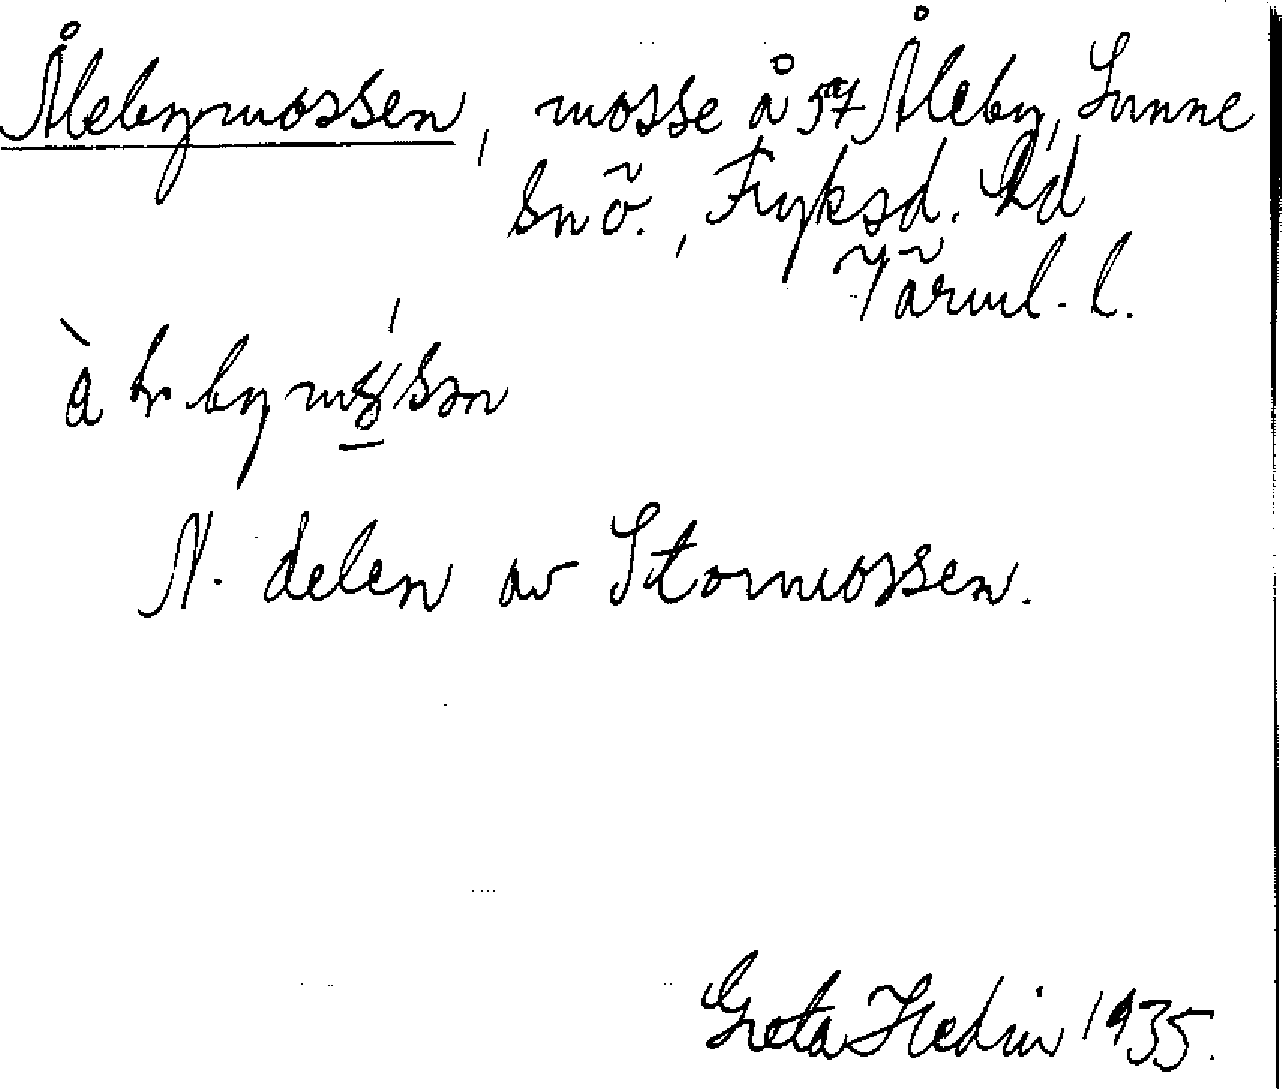 Ålebymossen, mosse å 5a7 Åleby, Sunne
Snö., Fryksd. Hd
Värml. l.
N. delen av Stormossen.
Greta Hedin 1935.